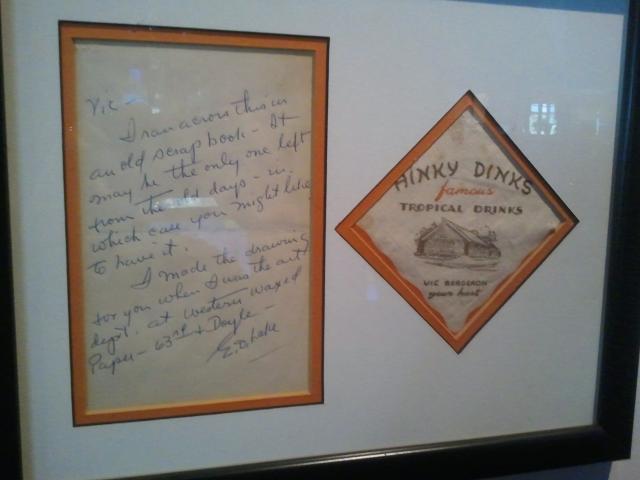 Vic -
I ran across this in
an old scrapbook - It
may be the only one left
from the old days - in
which case you might like
to have it.
I made the drawing
for you when I was the art
dept. at Western Waxed
Paper - 63rd & Doyle -
HINKY DINKS
famous
TROPICAL DRINKS
VIC BERGERON
your host